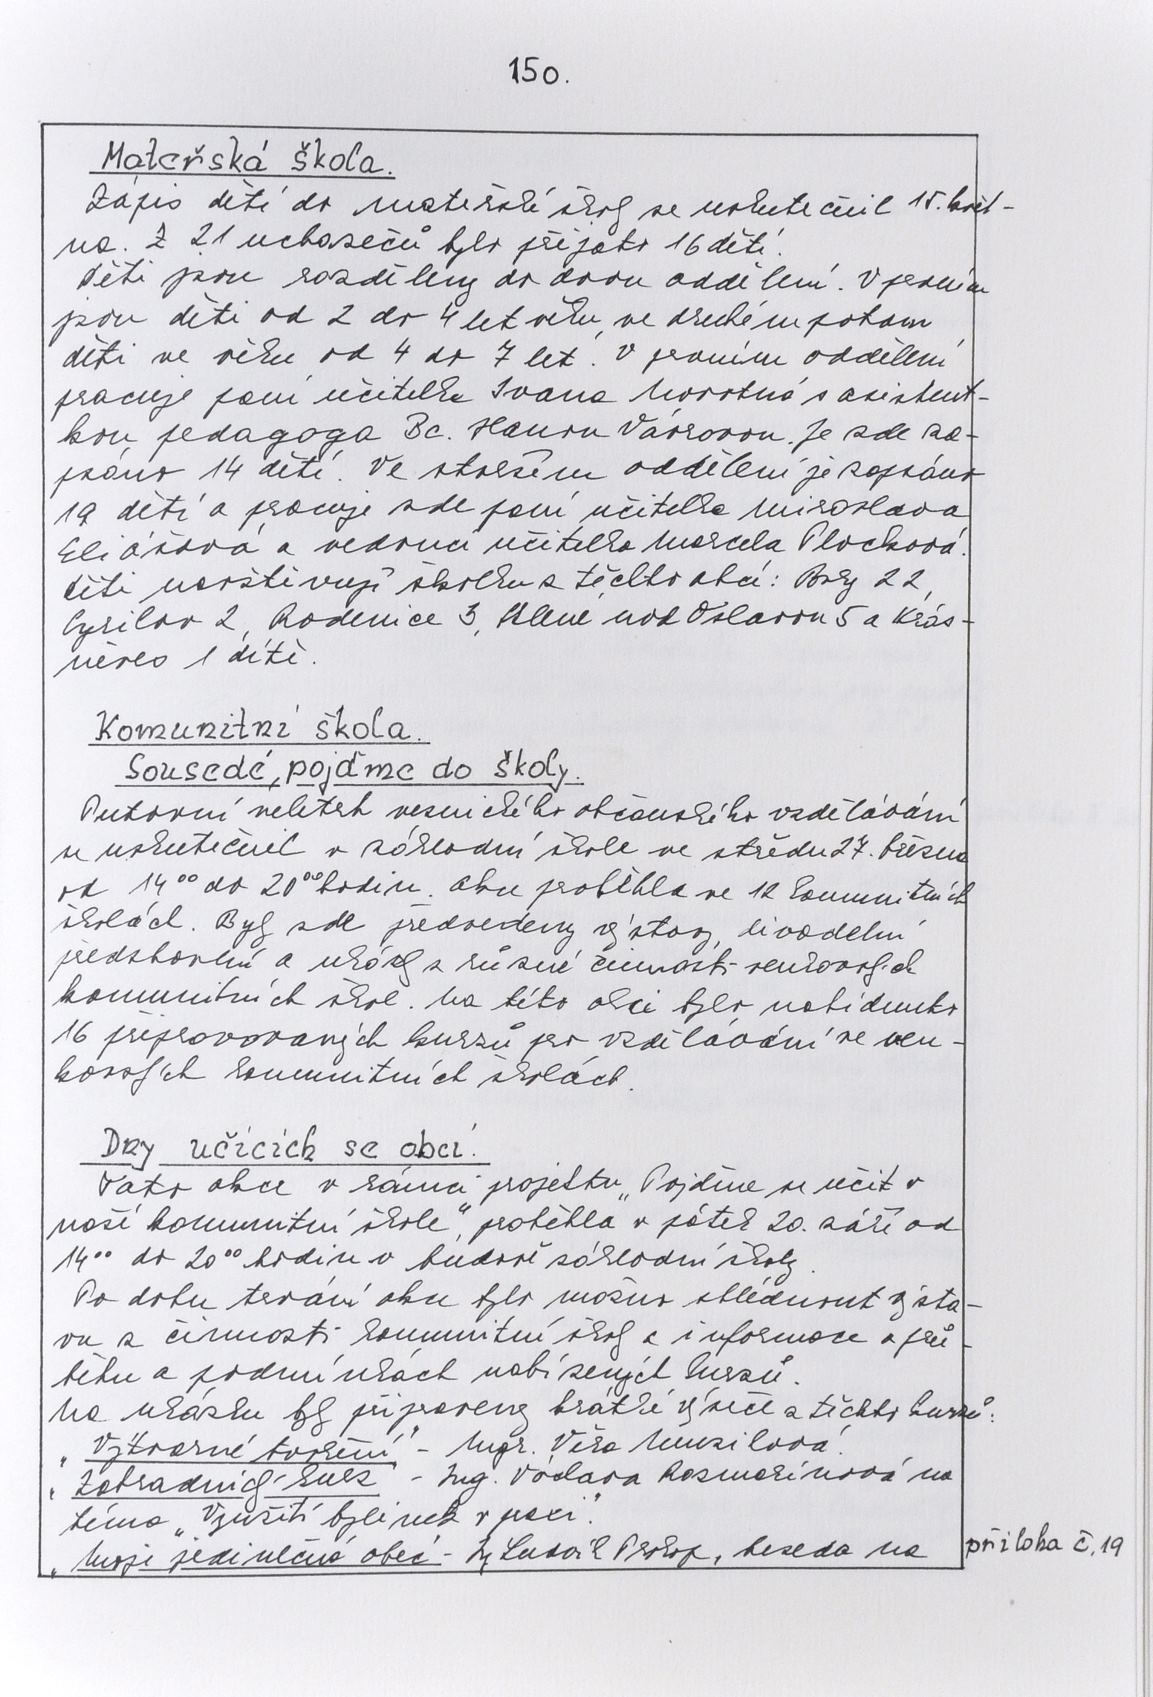 150.
Mateřská škola.
Zápis dětí do mateřské školy se uskutečnil 15. květ-
na. Z 21 uchazečů bylo přijato 16 dětí.
Děti jsou rozděleny do dvou oddělení. V prvním
jsou děti od 2 do 4 let věku, ve druhém potom
děti ve věku od 4 do 7 let. V prvním oddělení
pracuje paní učitelka Ivana Novotná s asistent-
kou pedagoga Bc. Hanou Vávrovou. Je zde za-
psáno 14 dětí. Ve starším oddělení je zapsáno
19 dětí a pracuje zde paní učitelka Miroslava
Eliášová a vedoucí učitelka Marcela Plocková.
Děti navštěvují školku z těchto obcí: Bory 22,
Cyrilov 2, Radenice 3, Sklené nad Oslavou 5 a Krás-
něves 1 dítě.
Komunitní škola.
Sousedé, pojďme do školy.
Putovní veletrh vesnického občanského vzdělávání
se uskutečnil v základní škole ve středu 27. března
od 14⁰⁰ do 20⁰⁰ hodin. Akce proběhla ve 12 komunitních
školách. Byly zde předvedeny výstavy, divadelní
představení a ukázky z různé činnosti venkovských
komunitních škol. Na této akci bylo nabídnuto
16 připravovaných kurzů pro vzdělávání ve ven-
kovských komunitních školách.
Dny učících se obcí.
Tato akce v rámci projektu „Pojďme se učit v
naší komunitní škole", proběhla v pátek 20. září od
14⁰⁰ do 20⁰⁰ hodin v budově základní školy.
Po dobu trvání akce bylo možno shlédnout výsta-
vu z činnosti komunitní školy a informace o prů-
běhu a podmínkách nabízených kurzů.
Na ukázku byly připraveny krátké výseče z těchto kurzů:
„Výtvarné tvoření" - Mgr. Věra Musilová.
„Zahradnický kurz" - Ing. Václava Rozmarínová na
téma „Využití bylinek v praxi".
„Moje jedinečná obec - Ludvík Prokop, beseda na
příloha č. 19